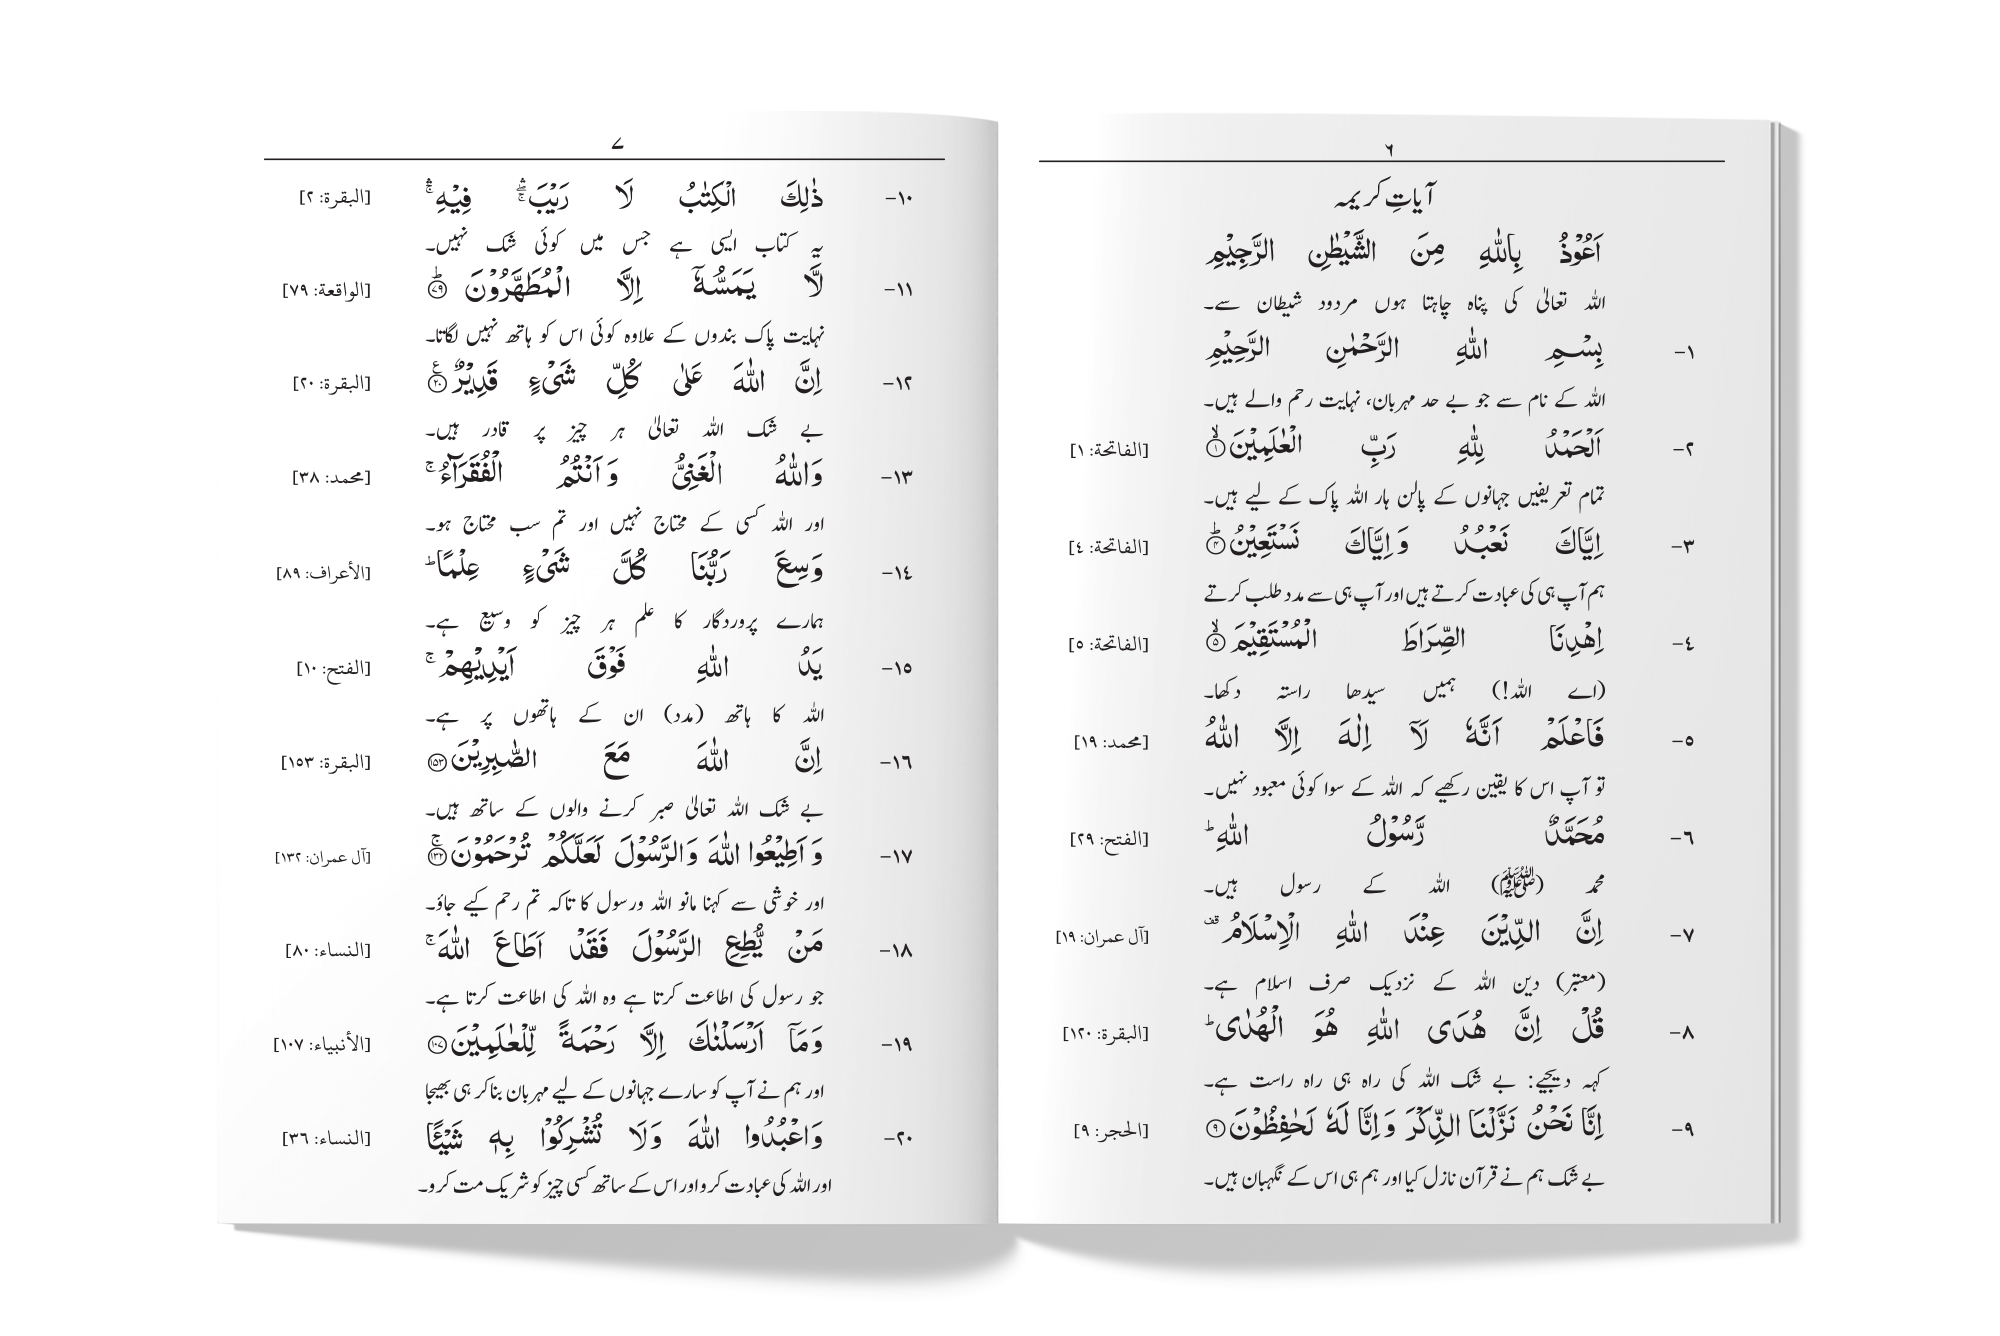 ۶
آیاتِ کریمہ
اَعُوْذُ بِاللّٰهِ مِنَ الشَّيْطٰنِ الرَّجِيْمِ
اللہ تعالیٰ کی پناہ چاہتا ہوں مردود شیطان سے۔
۱- بِسْمِ اللّٰهِ الرَّحْمٰنِ الرَّحِيْمِ
اللہ کے نام سے جو بے حد مہربان، نہایت رحم والے ہیں۔
۲- اَلْحَمْدُ لِلّٰهِ رَبِّ الْعٰلَمِيْنَ ۙ‏﴿۱﴾ [الفاتحة: ١]
تمام تعریفیں جہانوں کے پالن ہار اللہ پاک کے لیے ہیں۔
۳- اِيَّاكَ نَعْبُدُ وَاِيَّاكَ نَسْتَعِيْنُ ؕ‏﴿۴﴾ [الفاتحة: ٤]
ہم آپ ہی کی عبادت کرتے ہیں اور آپ ہی سے مدد طلب کرتے
٤- اِهْدِنَا الصِّرَاطَ الْمُسْتَقِيْمَ ۙ‏﴿۵﴾ [الفاتحة: ٥]
(اے اللہ!) ہمیں سیدھا راستہ دکھا۔
٥- فَاعْلَمْ اَنَّهٗ لَاۤ اِلٰهَ اِلَّا اللّٰهُ [محمد: ١٩]
تو آپ اس کا یقین رکھیے کہ اللہ کے سوا کوئی معبود نہیں۔
٦- مُحَمَّدٌ رَّسُوْلُ اللّٰهِ ؕ [الفتح: ٢٩]
محمد (ﷺ) اللہ کے رسول ہیں۔
۷- اِنَّ الدِّيْنَ عِنْدَ اللّٰهِ الْاِسْلَامُ ۫ [آل عمران: ١٩]
(معتبر) دین اللہ کے نزدیک صرف اسلام ہے۔
۸- قُلْ اِنَّ هُدَى اللّٰهِ هُوَ الْهُدٰى ؕ [البقرة: ١٢٠]
کہہ دیجیے: بے شک اللہ کی راہ ہی راہ راست ہے۔
۹- اِنَّا نَحْنُ نَزَّلْنَا الذِّكْرَ وَاِنَّا لَهٗ لَحٰفِظُوْنَ ‏﴿۹﴾ [الحجر: ٩]
بے شک ہم نے قرآن نازل کیا اور ہم ہی اس کے نگہبان ہیں۔
۷
۱۰- ذٰلِكَ الْكِتٰبُ لَا رَيْبَ ۛۚ فِيْهِ ۛۚ [البقرة: ٢]
یہ کتاب ایسی ہے جس میں کوئی شک نہیں۔
۱۱- لَّا يَمَسُّهٗۤ اِلَّا الْمُطَهَّرُوْنَ ؕ‏﴿۷۹﴾ [الواقعة: ٧٩]
نہایت پاک بندوں کے علاوہ کوئی اس کو ہاتھ نہیں لگاتا۔
۱۲- اِنَّ اللّٰهَ عَلٰى كُلِّ شَىْءٍ قَدِيْرٌ ‏﴿۲۰﴾ [البقرة: ٢٠]
بے شک اللہ تعالیٰ ہر چیز پر قادر ہیں۔
۱۳- وَاللّٰهُ الْغَنِىُّ وَاَنْتُمُ الْفُقَرَآءُ ۚ [محمد: ٣٨]
اور اللہ کسی کے محتاج نہیں اور تم سب محتاج ہو۔
١٤- وَسِعَ رَبُّنَا كُلَّ شَىْءٍ عِلْمًا ؕ [الأعراف: ٨٩]
ہمارے پروردگار کا علم ہر چیز کو وسیع ہے۔
١٥- يَدُ اللّٰهِ فَوْقَ اَيْدِيْهِمْ ۚ [الفتح: ١٠]
اللہ کا ہاتھ (مدد) ان کے ہاتھوں پر ہے۔
١٦- اِنَّ اللّٰهَ مَعَ الصّٰبِرِيْنَ ‏﴿۱۵۳﴾ [البقرة: ١٥٣]
بے شک اللہ تعالیٰ صبر کرنے والوں کے ساتھ ہیں۔
۱۷- وَاَطِيْعُوا اللّٰهَ وَالرَّسُوْلَ لَعَلَّكُمْ تُرْحَمُوْنَ ۚ‏﴿۱۳۲﴾ [آل عمران: ١٣٢]
اور خوشی سے کہنا مانو اللہ ورسول کا تاکہ تم رحم کیے جاؤ۔
۱۸- مَنْ يُّطِعِ الرَّسُوْلَ فَقَدْ اَطَاعَ اللّٰهَ ۚ [النساء: ٨٠]
جو رسول کی اطاعت کرتا ہے وہ اللہ کی اطاعت کرتا ہے۔
۱۹- وَمَاۤ اَرْسَلْنٰكَ اِلَّا رَحْمَةً لِّلْعٰلَمِيْنَ ‏﴿۱۰۷﴾ [الأنبياء: ١٠٧]
اور ہم نے آپ کو سارے جہانوں کے لیے مہربان بناکر ہی بھیجا
۲۰- وَاعْبُدُوا اللّٰهَ وَلَا تُشْرِكُوْا بِهٖ شَيْـًٔـا [النساء: ٣٦]
اور اللہ کی عبادت کرو اور اس کے ساتھ کسی چیز کو شریک مت کرو۔